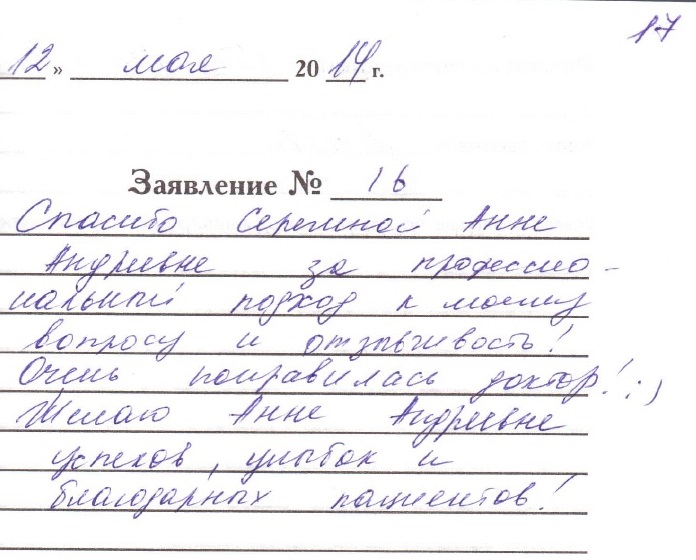 17
12 » мая 2014 г.
Заявление № 16
Спасибо Серегиной Анне
Андреевне за профессио-
нальный подход к моему
вопросу и отзывчивость!
Очень понравилась доктор! :)
Желаю Анне Андреевне
успехов, улыбок и
благодарных пациентов!